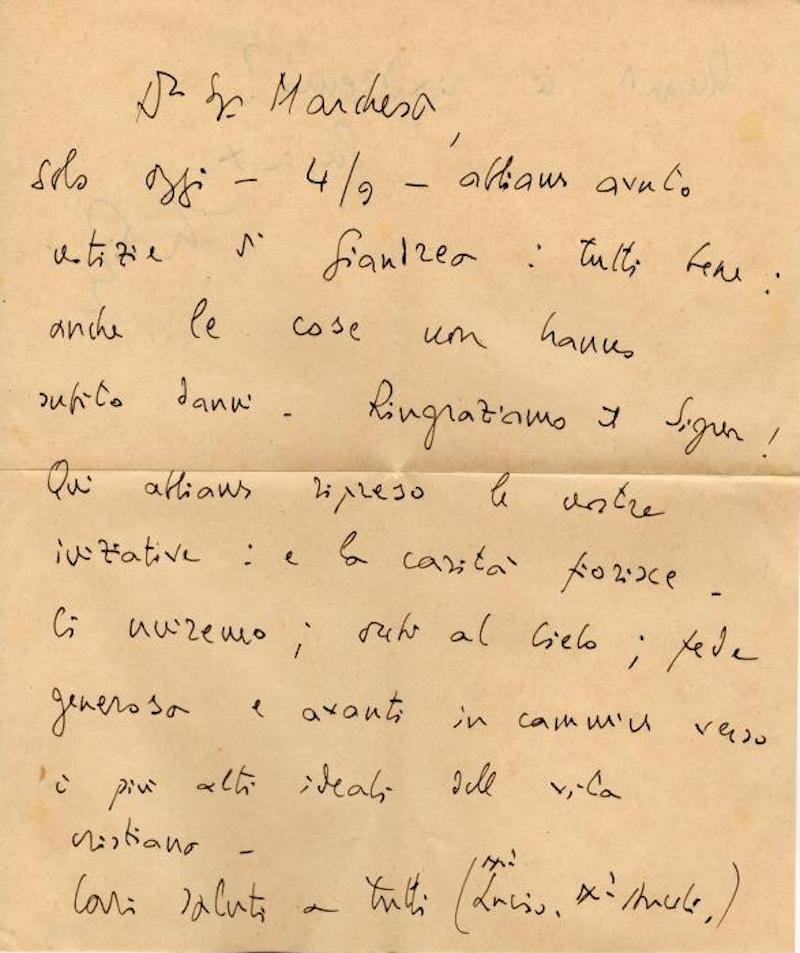 Sig. Marchesa,
solo oggi – 4/9 – abbiamo avuto
notizie di Giandrea : tutti bene :
anche le cose non hanno
subito danni – Ringraziamo il Signor !
Qui abbiamo ripreso le nostre
iniziative : e la carità fiorisce –
Ci uniremo ; al Cielo ; fede
generosa e avanti in cammino verso
i più alti ideali della vita
cristiana –
Cari saluti a tutti (